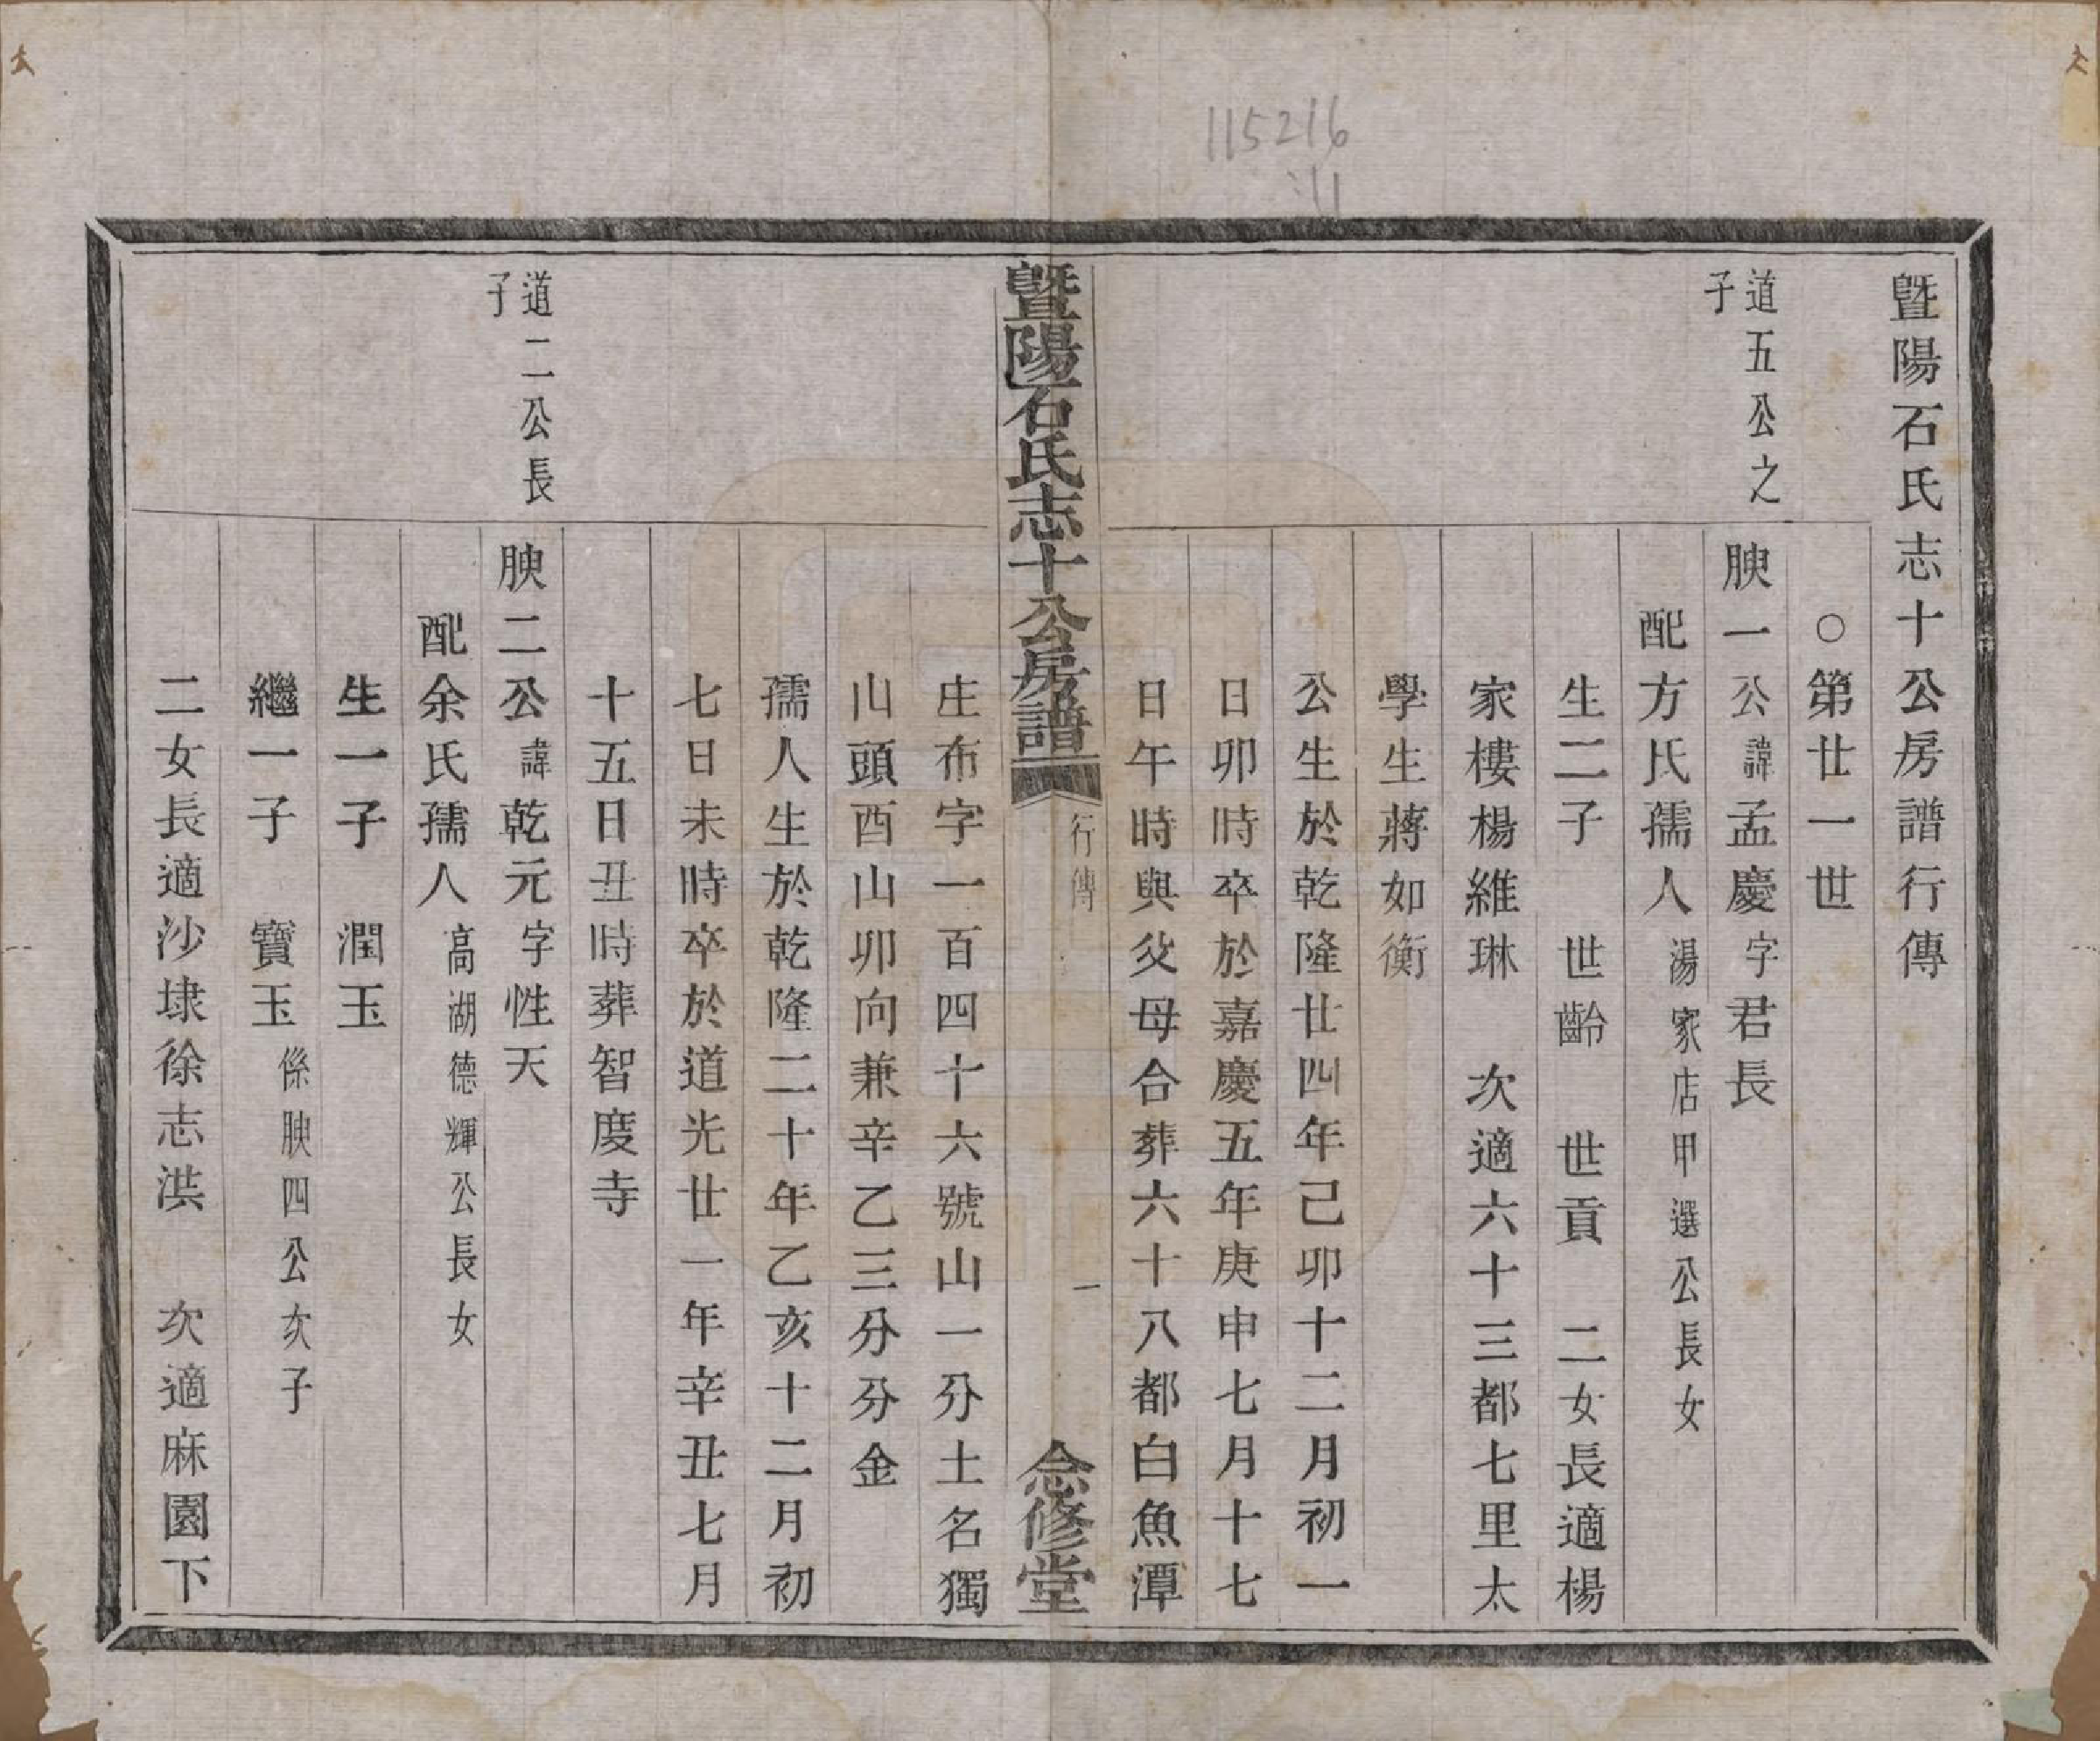 115216
:11
暨陽石氏志十公房譜行傳
○第廿一世
道五公之
子
腴一公諱孟慶字君長
配方氏孺人湯家店甲選公長女
生二子 世齡 世貢 二女長適楊
家樓楊維琳 次適六十三都七里太
學生蔣如衡
公生於乾隆廿四年己卯十二月初一
日卯時卒於嘉慶五年庚申七月十七
日午時與父母合葬六十八都白魚潭
暨陽石氏志十公房譜
行傳
一
念修堂
庄布字一百四十六號山一分土名獨
山頭酉山卯向兼辛乙三分分金
孺人生於乾隆二十年乙亥十二月初
七日未時卒於道光廿一年辛丑七月
十五日丑時葬智度寺
道二公長
子
腴二公諱乾元字性天
配余氏孺人高湖德輝公長女
生一子 潤玉
繼一子 寶玉係腴四公次子
二女長適沙埭徐志洪 次適麻園下